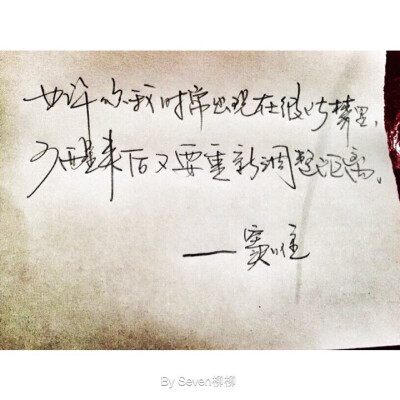 也许你我时常出现在彼此梦里,
醒来后又要重新调整距离。
——窦唯
By Seven柳柳